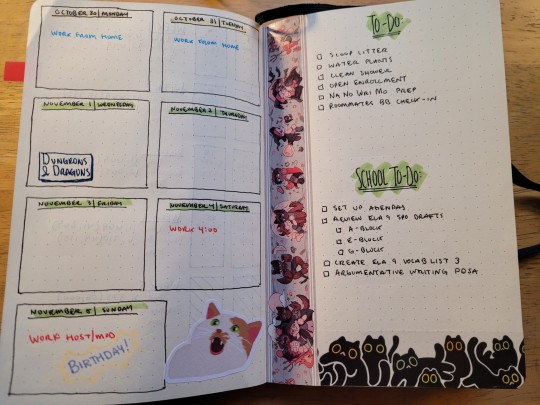 OCTOBER 30 | MONDAY
WORK FROM HOME
OCTOBER 31 | TUESDAY
WORK FROM HOME
NOVEMBER 1 | WEDNESDAY
DUNGEONS
& DRAGONS
NOVEMBER 2 | THURSDAY
NOVEMBER 3 | FRIDAY
NOVEMBER 4 | SATURDAY
WORK 4:00
NOVEMBER 5 | SUNDAY
WORK HOST/MOD
BIRTHDAY!
TO-DO:
SCOOP LITTER
WATER PLANTS
CLEAN SHOWER
OPEN ENROLLMENT
NANOWRIMO PREP
ROOMMATES BB CHECK-IN
SCHOOL TO-DO:
SET UP AGENDAS
REVIEW ELA 9 DRAFTS
A-BLOCK
E-BLOCK
G-BLOCK
CREATE ELA 9 VOCAB LIST 3
ARGUMENTATIVE WRITING